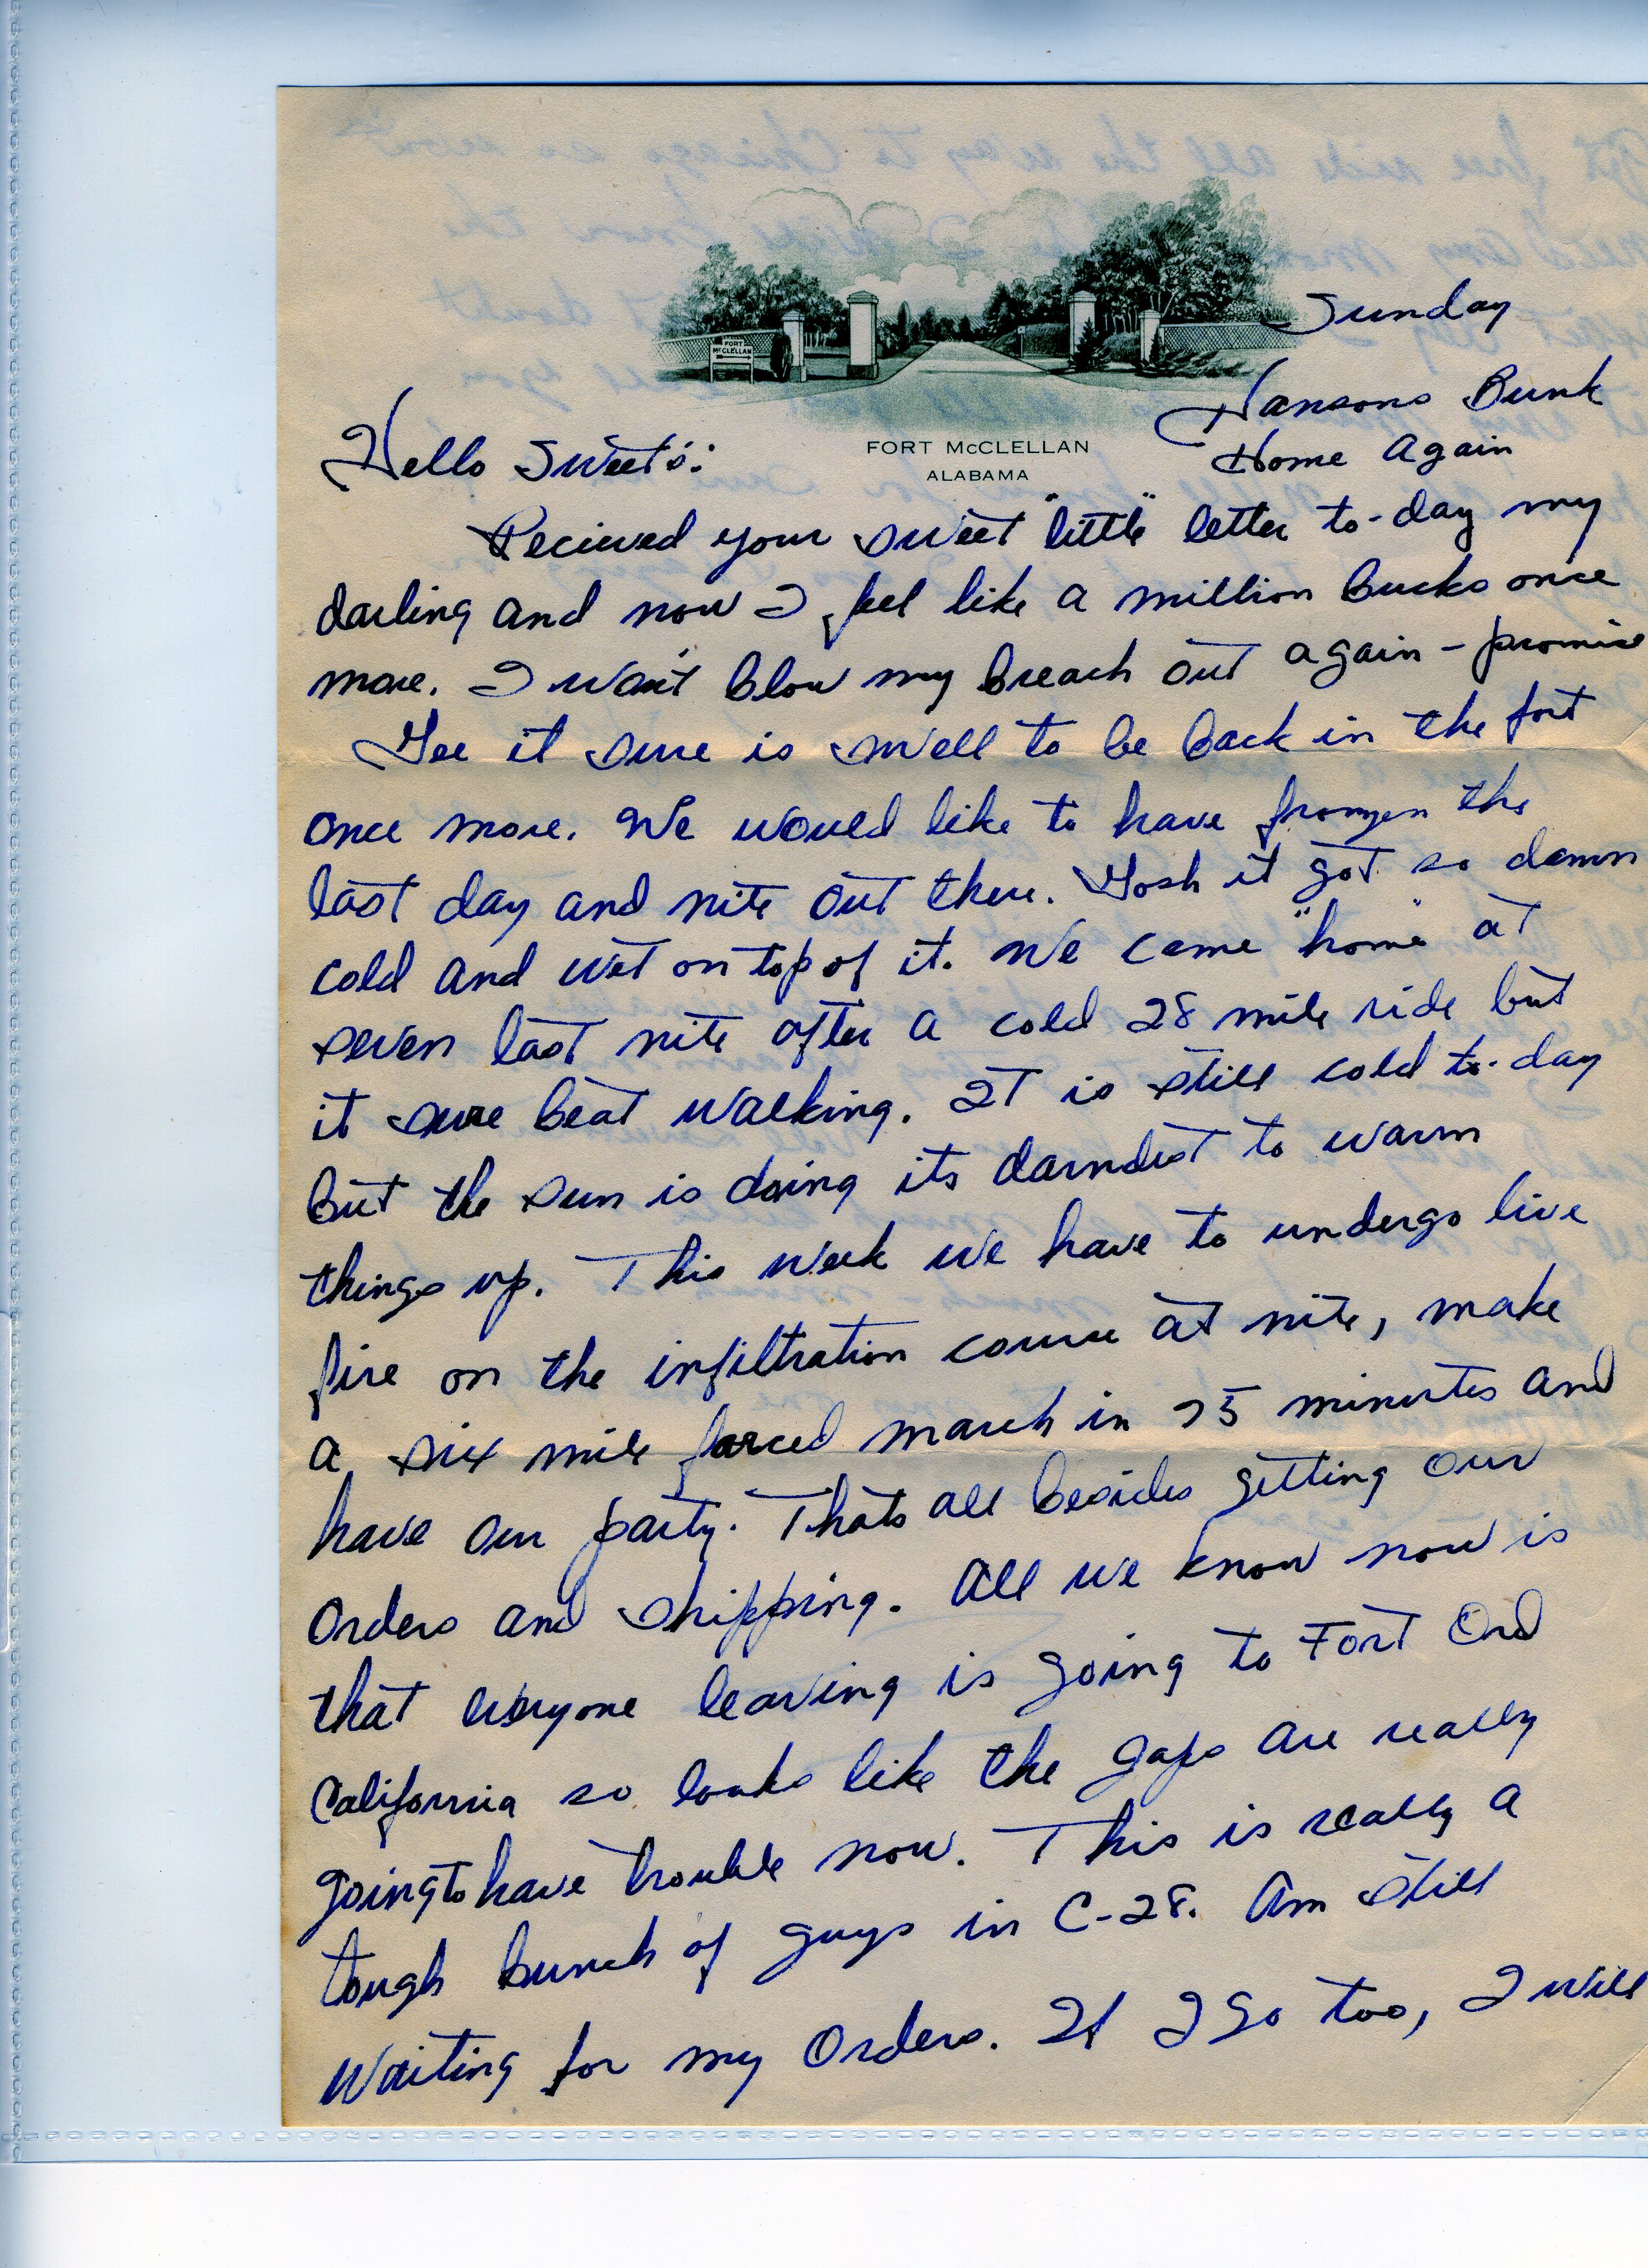 FORT
McCLELLAN
Sunday
Hansons Bunk
Home Again
FORT McCLELLAN
ALABAMA
Hello Sweet's:
Recieved your sweet "little" letter to-day my
darling and now I feel like a million bucks once
more. I won't blow my breach out again - promise
Gee it sure is swell to be back in the fort
once more. We would like to have frozen the
last day and nite out there. Gosh it got so damn
cold and wet on top of it. We came "home" at
seven last nite after a cold 28 mile ride but
it sure beat walking. It is still cold to-day
but the sun is doing its darndest to warm
things up. This week we have to undergo live
fire on the infiltration course at nite, make
a six mile forced march in 75 minutes and
have our party. Thats all besides getting our
orders and shipping. All we know now is
that everyone leaving is going to Fort Ord
California so looks like the Japs are really
going to have trouble now. This is really a
tough bunch of guys in C-28. Am still
waiting for my orders. If I go too, I will